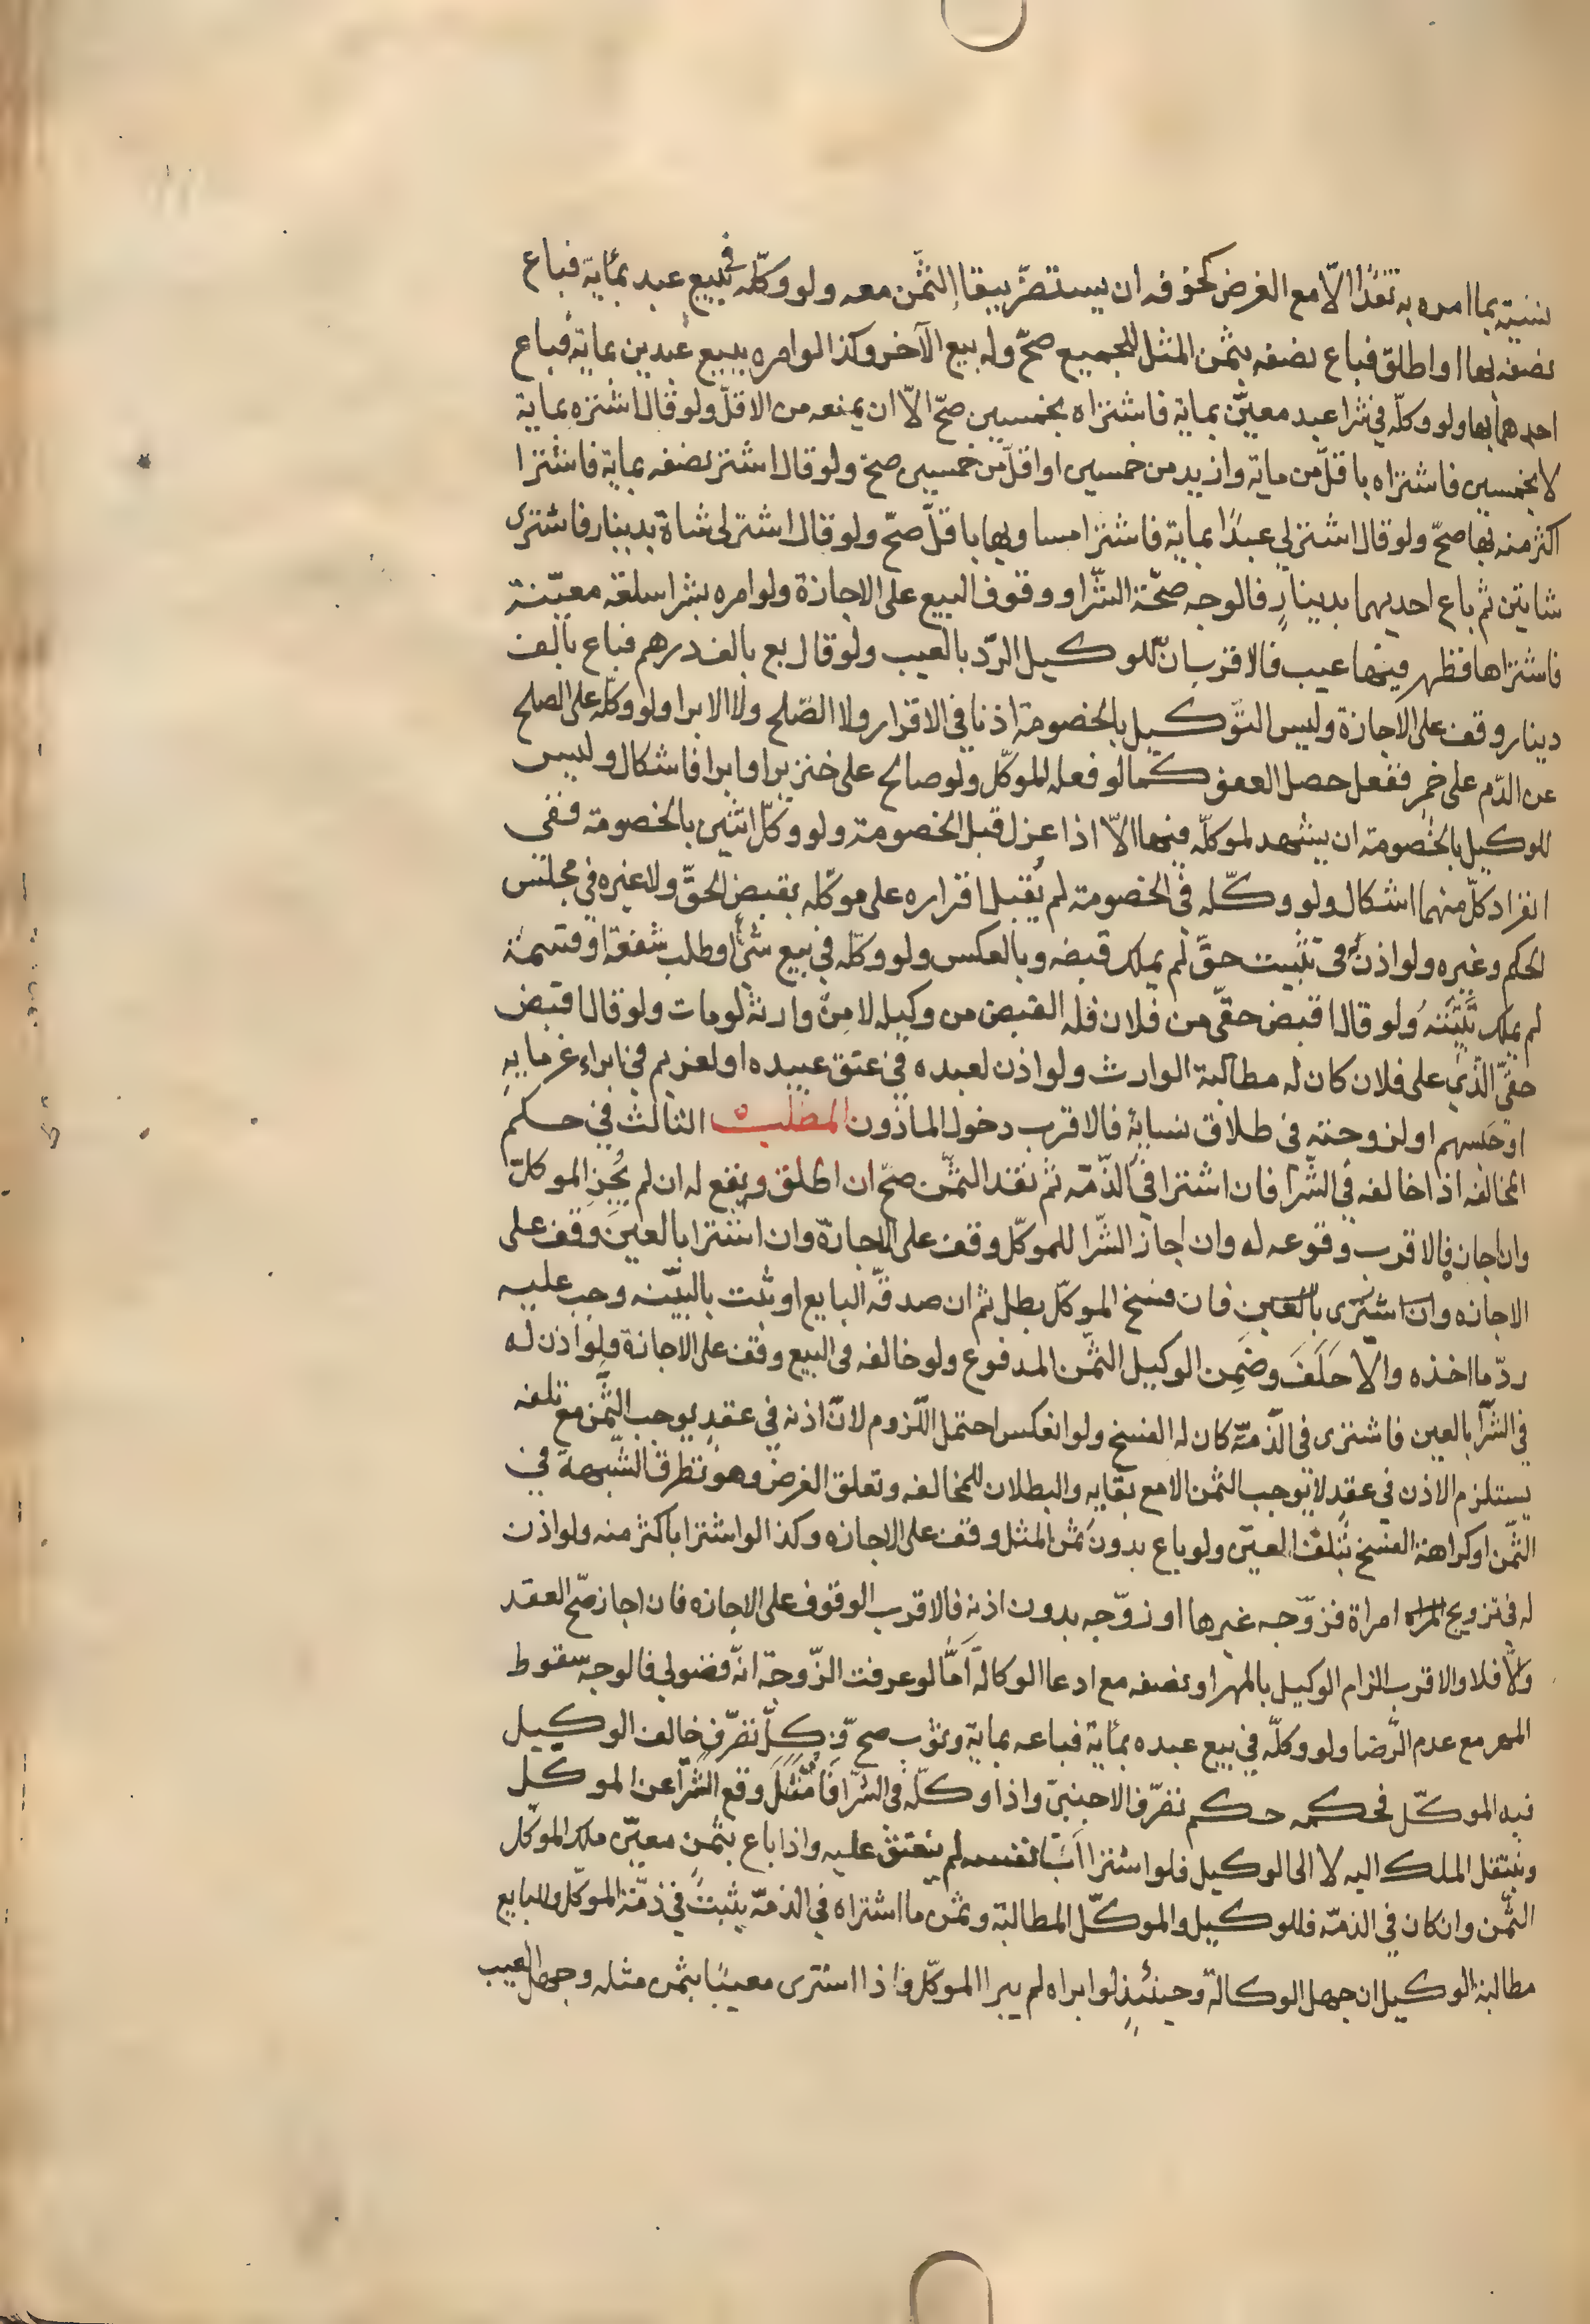 نسيئة بما امره به نقدًا الّا مع الغرض كخوفه ان يستضرّ ببقاء الثّمن معه ولو وكّله في بيع عبد بمأية فباع
نصفه بها او اطلق فباع نصفه بثمن المثل للجميع صحّ وله بيع الآخر وكذا لو امره ببيع عبدين بماية فباع
احدهما بها ولو وكّله في شرا عبد معيّن بماية فاشتراه بخمسين صحّ الّا ان يمنعه من الاقلّ ولو قال اشتره بماية
لا بخمسين فاشتراه باقلّ من ماية وازيد من خمسين او اقلّ من خمسين صحّ ولو قال اشتر نصفه بماية فاشترا
اكثر منه بها صحّ ولو قال اشتر لي عبدًا بماية فاشترا مساويها باقلّ صحّ ولو قال اشتر لى شاة بدينار فاشترى
شاتين ثم باع احديهما بدينارٍ فالوجه صحّة الشّرا ووقوف البيع على الاجازة ولو امره بشرا سلعة معيّنة
فاشتراها فظهر فيها عيب فالاقرب انّ للوكيل الرّد بالعيب ولو قال بع بالف درهم فباع بالف
دينار وقف على الاجازة وليس التّوكيل بالخصومة اذنا في الاقرار ولا الصّلح ولا الابرا ولو وكّله على الصلح
عن الدّم على خمر ففعل حصل العفو كما لو فعله الموكّل ولو صالح على خنزير او ابرا فاشكال وليس
للوكيل بالخصومة ان يشهد لموكلّه فيها الّا اذا عزل قبل الخصومة ولو وكّل اثنين بالخصومة ففى
انفراد كلّ منهما اشكال ولو وكّله في الخصومة لم يُقبل اقراره على موكّله بقبض الحقّ ولا غيره في مجلس
الحكم وغيره ولو اذن له في تثبيت حقّ لم يملك قبضه وبالعكس ولو وكّله في بيع شئ او طلب شفعة او قسمة
لم يملك تثبّته ولو قال اقبض حقّي من فلان فله القبض من وكيله لا من وارثه لو مات ولو قال اقبض
حقّي الّذي على فلان كان له مطالبة الوارث ولو اذن لعبده في عتق عبيده او لغريم في ابراء غرمايه
او حبسهم او لزوجته في طلاق نسايه فالاقرب دخول الماذون المطلب الثالث في حكم
المخالفه اذا خالفه في الشّرا فان اشترا في الذّمّه ثم نقد الثّمن صحّ ان اطلق ويقع له ان لم يُجز الموكلّ
وان اجاز فالاقرب وقوعه له وان اجاز الشّرا للموكّل وقف على الاجازة وان اشترا بالعين وقف على
الاجازه وان اشترى بالعين فان فسخ الموكّل بطل ثم ان صدقّه البايع او ثبت بالبيّنه وجب عليه
ردّ ما اخذه والّا حَلَفَ وضمِن الوكيل الثّمن المدفوع ولو خالفه في البيع وقف على الاجازة ولو اذن له
في الشّرا بالعين فاشترى في الذّمّة كان له الفسخ ولو انعكس احتمل اللّزوم لانّ اذنه في عقدٍ يوجب الثّمن مع تلفه
يستلزم الاذن في عقدٍ لا يوجب الثمن الا مع بقايه والبطلان للمخالفه وتعلق الغرض وهو تطرق الشّبهة في
الثّمن او كراهة الفسخ بتلف العين ولو باع بدون ثمن المثل وقف على الاجازه وكذا لو اشترا باكثر منه ولو اذن
له في تزويج امراة فزوّجه غيرها او زوّجه بدون اذنه فالاقرب الوقوف على الاجازه فان اجاز صّح العقد
والّا فلا والاقرب الزام الوكيل بالمهر او نصفه مع ادعا الوكالة امّا لو عرفت الزّوجة انّه فضولي فالوجه سقوط
المهر مع عدم الرّضا ولو وكلّه في بيع عبده بمأية فباعه بماية وثوب صحّ وكلّ تصرّف خالف الوكيل
فيه الموكّل فحكمه حكم تصرّف الاجنبيّ واذا وكلّه في الشّرا فامتثلَ وقع الشّرا عن الموكّل
وينتقل الملك اليه لا الى الوكيل فلو اشترا ابَ نفسه لم ينعتق عليه واذا باع بثمن معيّن ملك الموكّل
الثّمن وان كان في الذمّه فللوكيل والموكّل المطالبة وثمن ما اشتراه في الذمّة يثبت في ذمّة الموكّل وللبايع
مطالبة الوكيل ان جهل الوكالة وحينئذٍ لو ابراه لم يبرا الموكّل واذا اشترى معيبًا بثمن مثله وجهل العيب